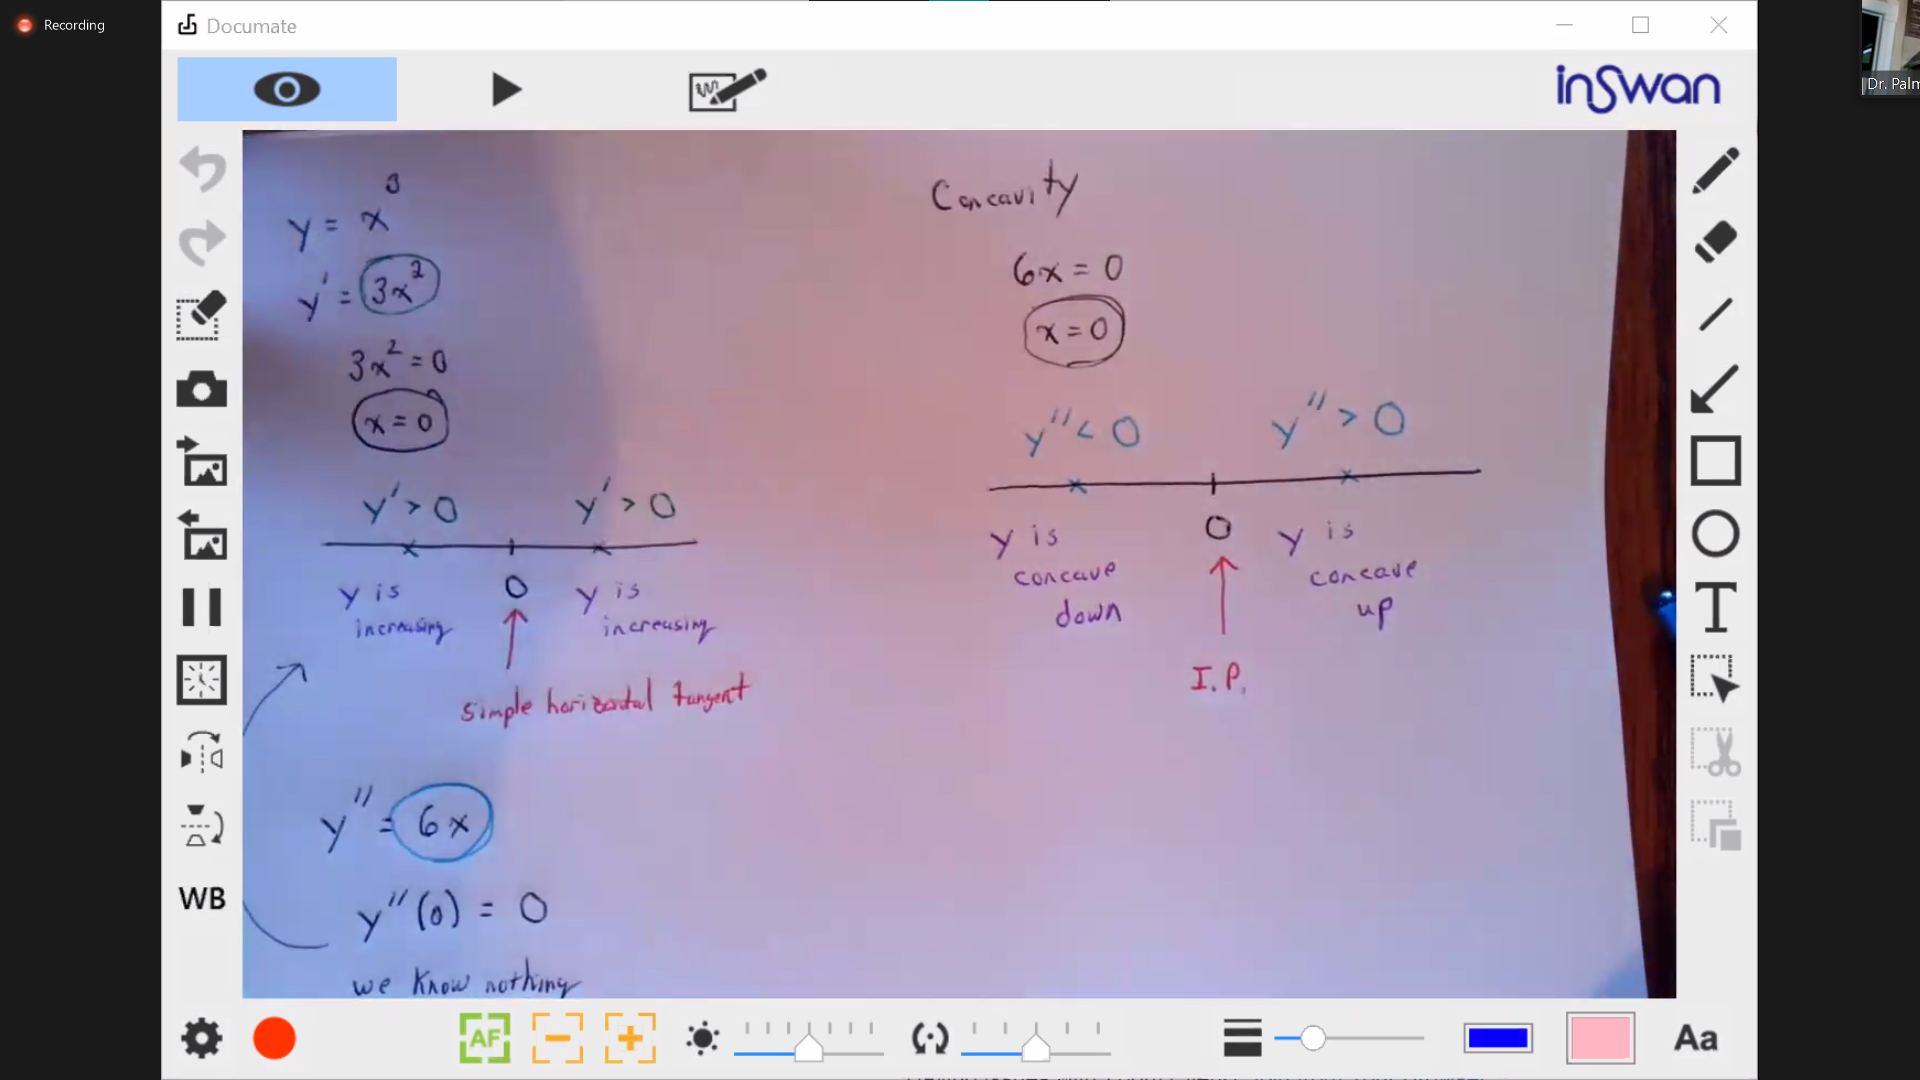 Recording
Documate
inSwan
Dr. Palm
y = x³
y' = 3x²
3x² = 0
x = 0
y' > 0 y' > 0
0
y is increasing
y is increasing
simple horizontal tangent
y'' = 6x
y''(0) = 0
we know nothing
Concavity
6x = 0
x = 0
y'' < 0 y'' > 0
0
y is concave down
y is concave up
I.P.
WB
T
AF
Aa